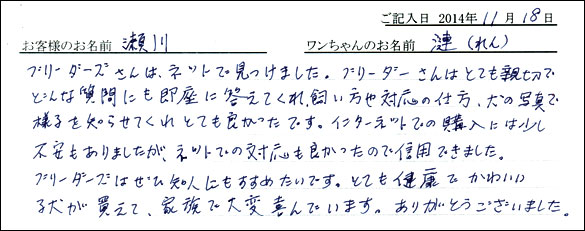 ご記入日 2014年11月18日
お客様のお名前 瀬川 ワンちゃんのお名前 漣(れん)
ブリーダーズさんは、ネットで見つけました。ブリーダーさんはとても親切で
どんな質問にも即座に答えてくれ、飼い方や対応の仕方、犬の写真で
様子を知らせてくれとても良かったです。インターネットでの購入には少し
不安もありましたが、ネットでの対応も良かったので信用できました。
ブリーダーズはぜひ知人にもすすめたいです。とても健康でかわいい
子犬が買えて、家族で大変喜んでいます。ありがとうございました。